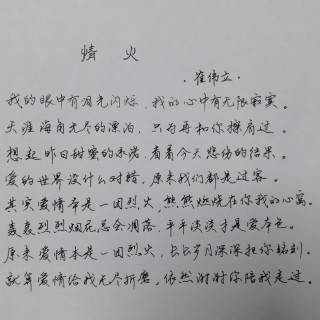 情火
崔伟立
我的眼中有泪光闪烁、我的心中有无限寂寞。
天涯海角无尽的漂泊、只为再和你擦肩过。
想起昨日甜蜜的承诺、看看今天悲伤的结果。
爱的世界没什么对错、原来我们都是过客。
其实爱情本是一团烈火、熊熊燃烧在你我的心窝。
轰轰烈烈烟花总会凋落、平平淡淡才是爱本色。
原来爱情本是一团烈火、长长岁月深深把你铭刻。
就算爱情给我无尽折磨、依然谢谢你陪我走过。